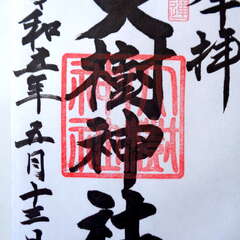 奉拝
大樹神社
令和五年五月十三日